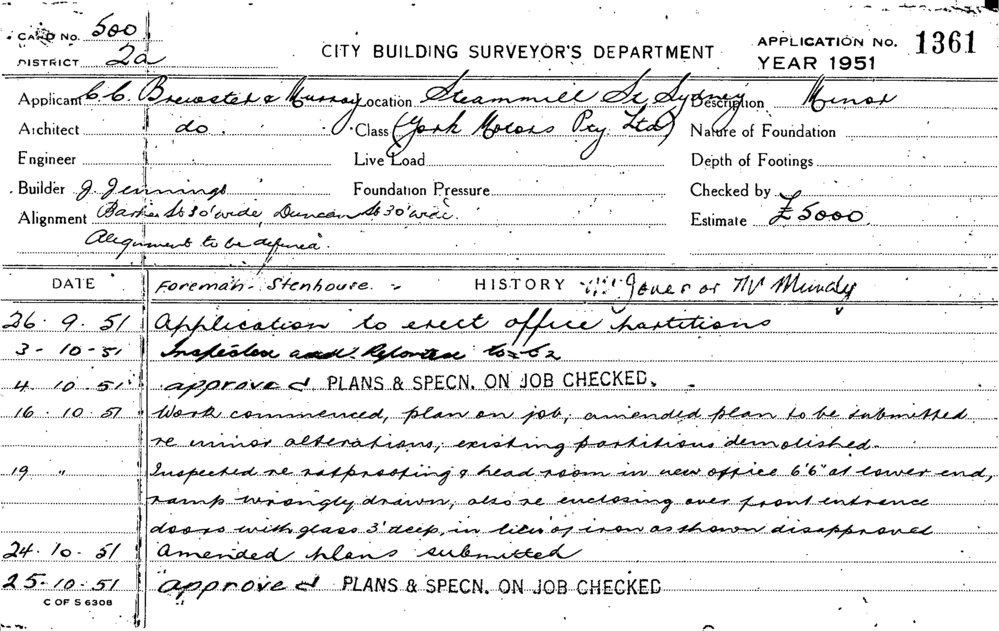 CARD NO. 500
DISTRICT 2a
CITY BUILDING SURVEYOR'S DEPARTMENT
APPLICATION NO. 1361
YEAR 1951
Applicant C.C. Brewster & Murray Location Steammill St Sydney Description Minor
Architect do. Class (York Motors Pty Ltd) Nature of Foundation
Engineer Live Load Depth of Footings
Builder J. Jennings Foundation Pressure Checked by
Alignment Barker St 30' wide, Duncan St 30' wide. Estimate £5000
Alignment to be defined.
DATE Foreman - Stenhouse. - HISTORY Jones or Mundy
26.9.51 Application to erect office partitions
3-10-51 Inspected and Reported
4.10.51 approved PLANS & SPECN. ON JOB CHECKED.
16.10.51 Work commenced, plan on job, amended plan to be submitted
re minor alterations, existing partitions demolished.
19 " Inspected re ratproofing & head room in new office 6'6" at lower end,
ramp wrongly drawn, also re enclosing over front entrance
doors with glass 3' deep, in lieu of iron as shown disapproved
24.10.51 Amended plans submitted
25-10.51 approved PLANS & SPECN. ON JOB CHECKED
C OF S 6308